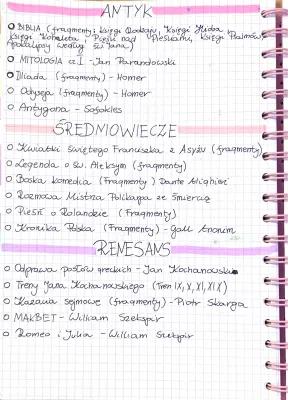 ANTYK
BIBLIA (fragmenty: Księgi Rodzaju, Księgi Hioba,
Księgi Koheleta, Pieśni nad Pieśniami, Księgi Psalmów,
Apokalipsy według św. Jana)
MITOLOGIA cz. I - Jan Parandowski
Iliada (fragmenty) - Homer
Odyseja (fragmenty) - Homer
Antygona - Sofokles
ŚREDNIOWIECZE
Kwiatki świętego Franciszka z Asyżu (fragmenty)
Legenda o św. Aleksym (fragmenty)
Boska komedia (Fragmenty) Dante Alighieri
Rozmowa Mistrza Polikarpa ze Śmiercią
Pieśń o Rolandzie (Fragmenty)
Kronika Polska (Fragmenty) - Gall Anonim
RENESANS
Odprawa posłów greckich - Jan Kochanowski
Treny Jana Kochanowskiego (Tren IX, X, XI, XIX)
Kazania sejmowe (fragmenty) - Piotr Skarga
MAKBET - William Szekspir
Romeo i Julia - William Szekspir